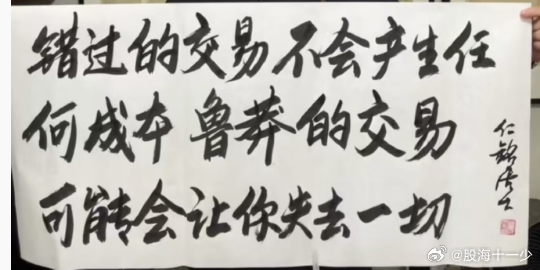 错过的交易不会产生任
何成本 鲁莽的交易
可能会让你失去一切
@股海十一少